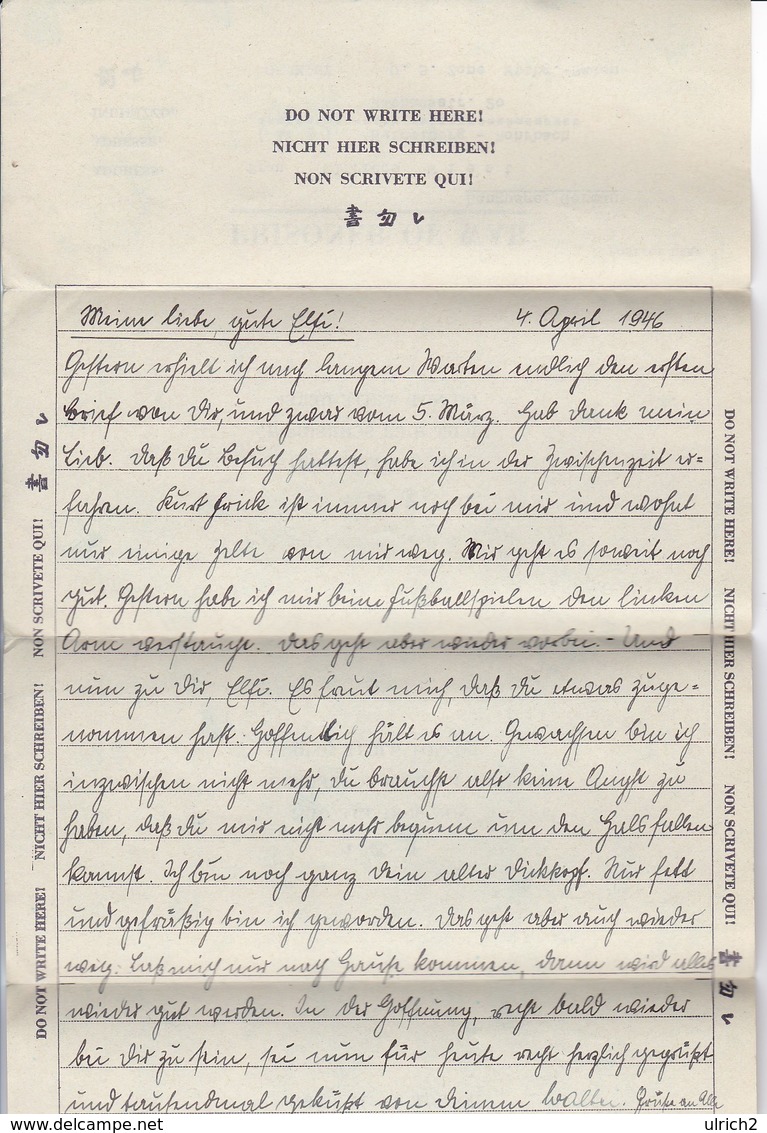 DO NOT WRITE HERE!
NICHT HIER SCHREIBEN!
NON SCRIVETE QUI!
書勿レ
Meine liebe, gute Elfi! 4. April 1946
Gestern erhielt ich nach langem Warten endlich den ersten
Brief von Dir, und zwar vom 5. März. Hab Dank mein
Lieb. Daß Du Besuch hattest, habe ich in der Zwischenzeit er=
fahren. Kurt Frick ist immer noch bei mir und wohnt
nur einige Zelte von mir weg. Mir geht es soweit noch
gut. Gestern habe ich mir beim Fußballspielen den linken
Arm verstaucht. Das geht aber wieder vorbei. - Und
nun zu Dir, Elfi. Es freut mich, daß Du etwas zuge=
nommen hast. Hoffentlich hält es an. Gewachsen bin ich
inzwischen nicht mehr, Du brauchst also keine Angst zu
haben, daß Du mir nicht mehr bequem um den Hals fallen
kannst. Ich bin noch ganz Dein alter Dickkopf. Nur fett
und gefräßig bin ich geworden. Das geht aber auch wieder
weg. Laß mich nur nach Hause kommen, dann wird alles
wieder gut werden. In der Hoffnung, recht bald wieder
bei Dir zu sein, sei nun für heute recht herzlich gegrüßt
und tausendmal geküßt von Deinem Walter. Grüße an Alle
DO NOT WRITE HERE! NICHT HIER SCHREIBEN! NON SCRIVETE QUI! 書勿レ
DO NOT WRITE HERE! NICHT HIER SCHREIBEN! NON SCRIVETE QUI! 書勿レ
www.delcampe.net
ulrich2